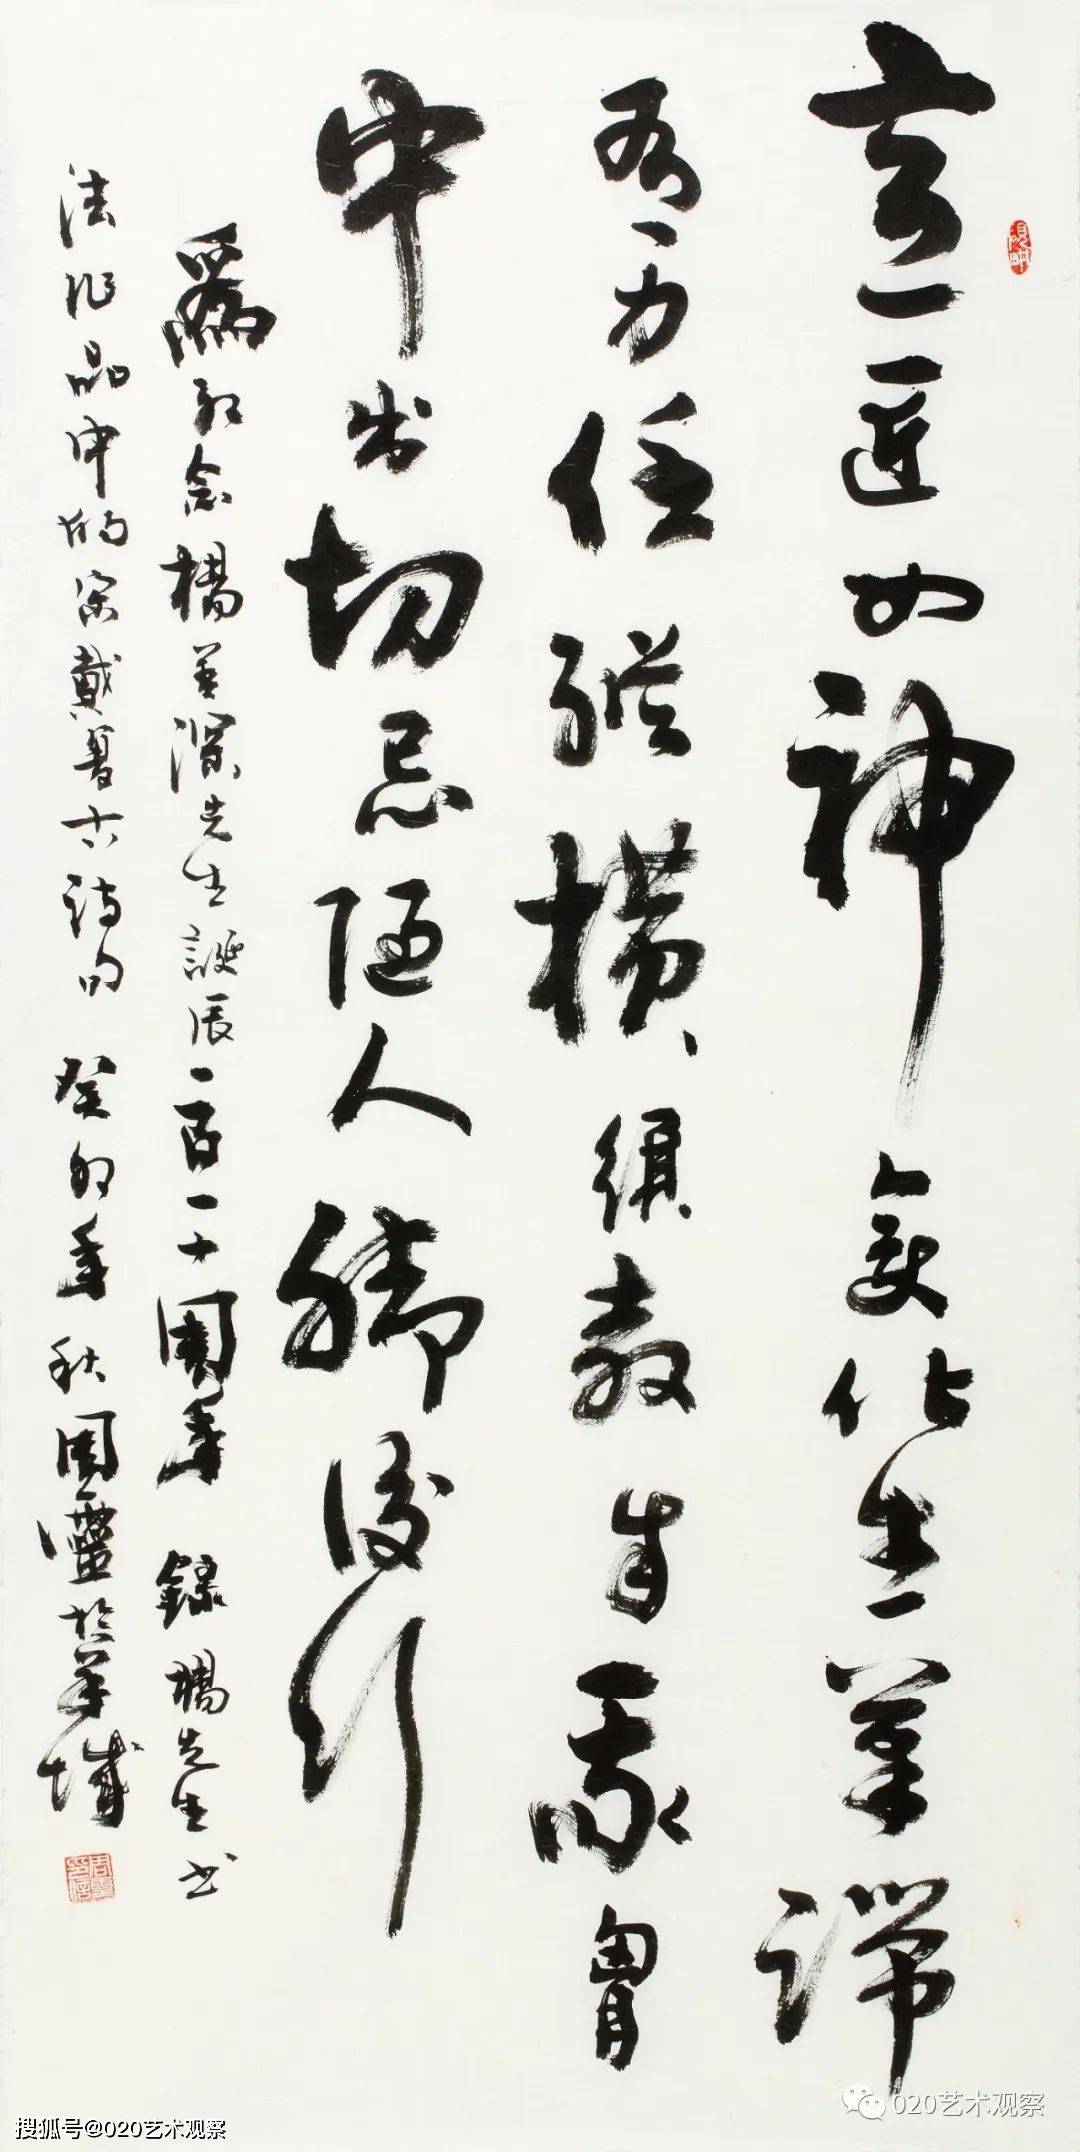 意匠如神變化生筆端
有力任縱橫須教自我胸
中出切忌随人腳後行
爲紀念楊善深先生誕辰一百一十周年 錄楊先生書
法作品中的宋戴复古詩句 癸卯年秋周於羊城
硯畊
搜狐号@020艺术观察
020艺术观察